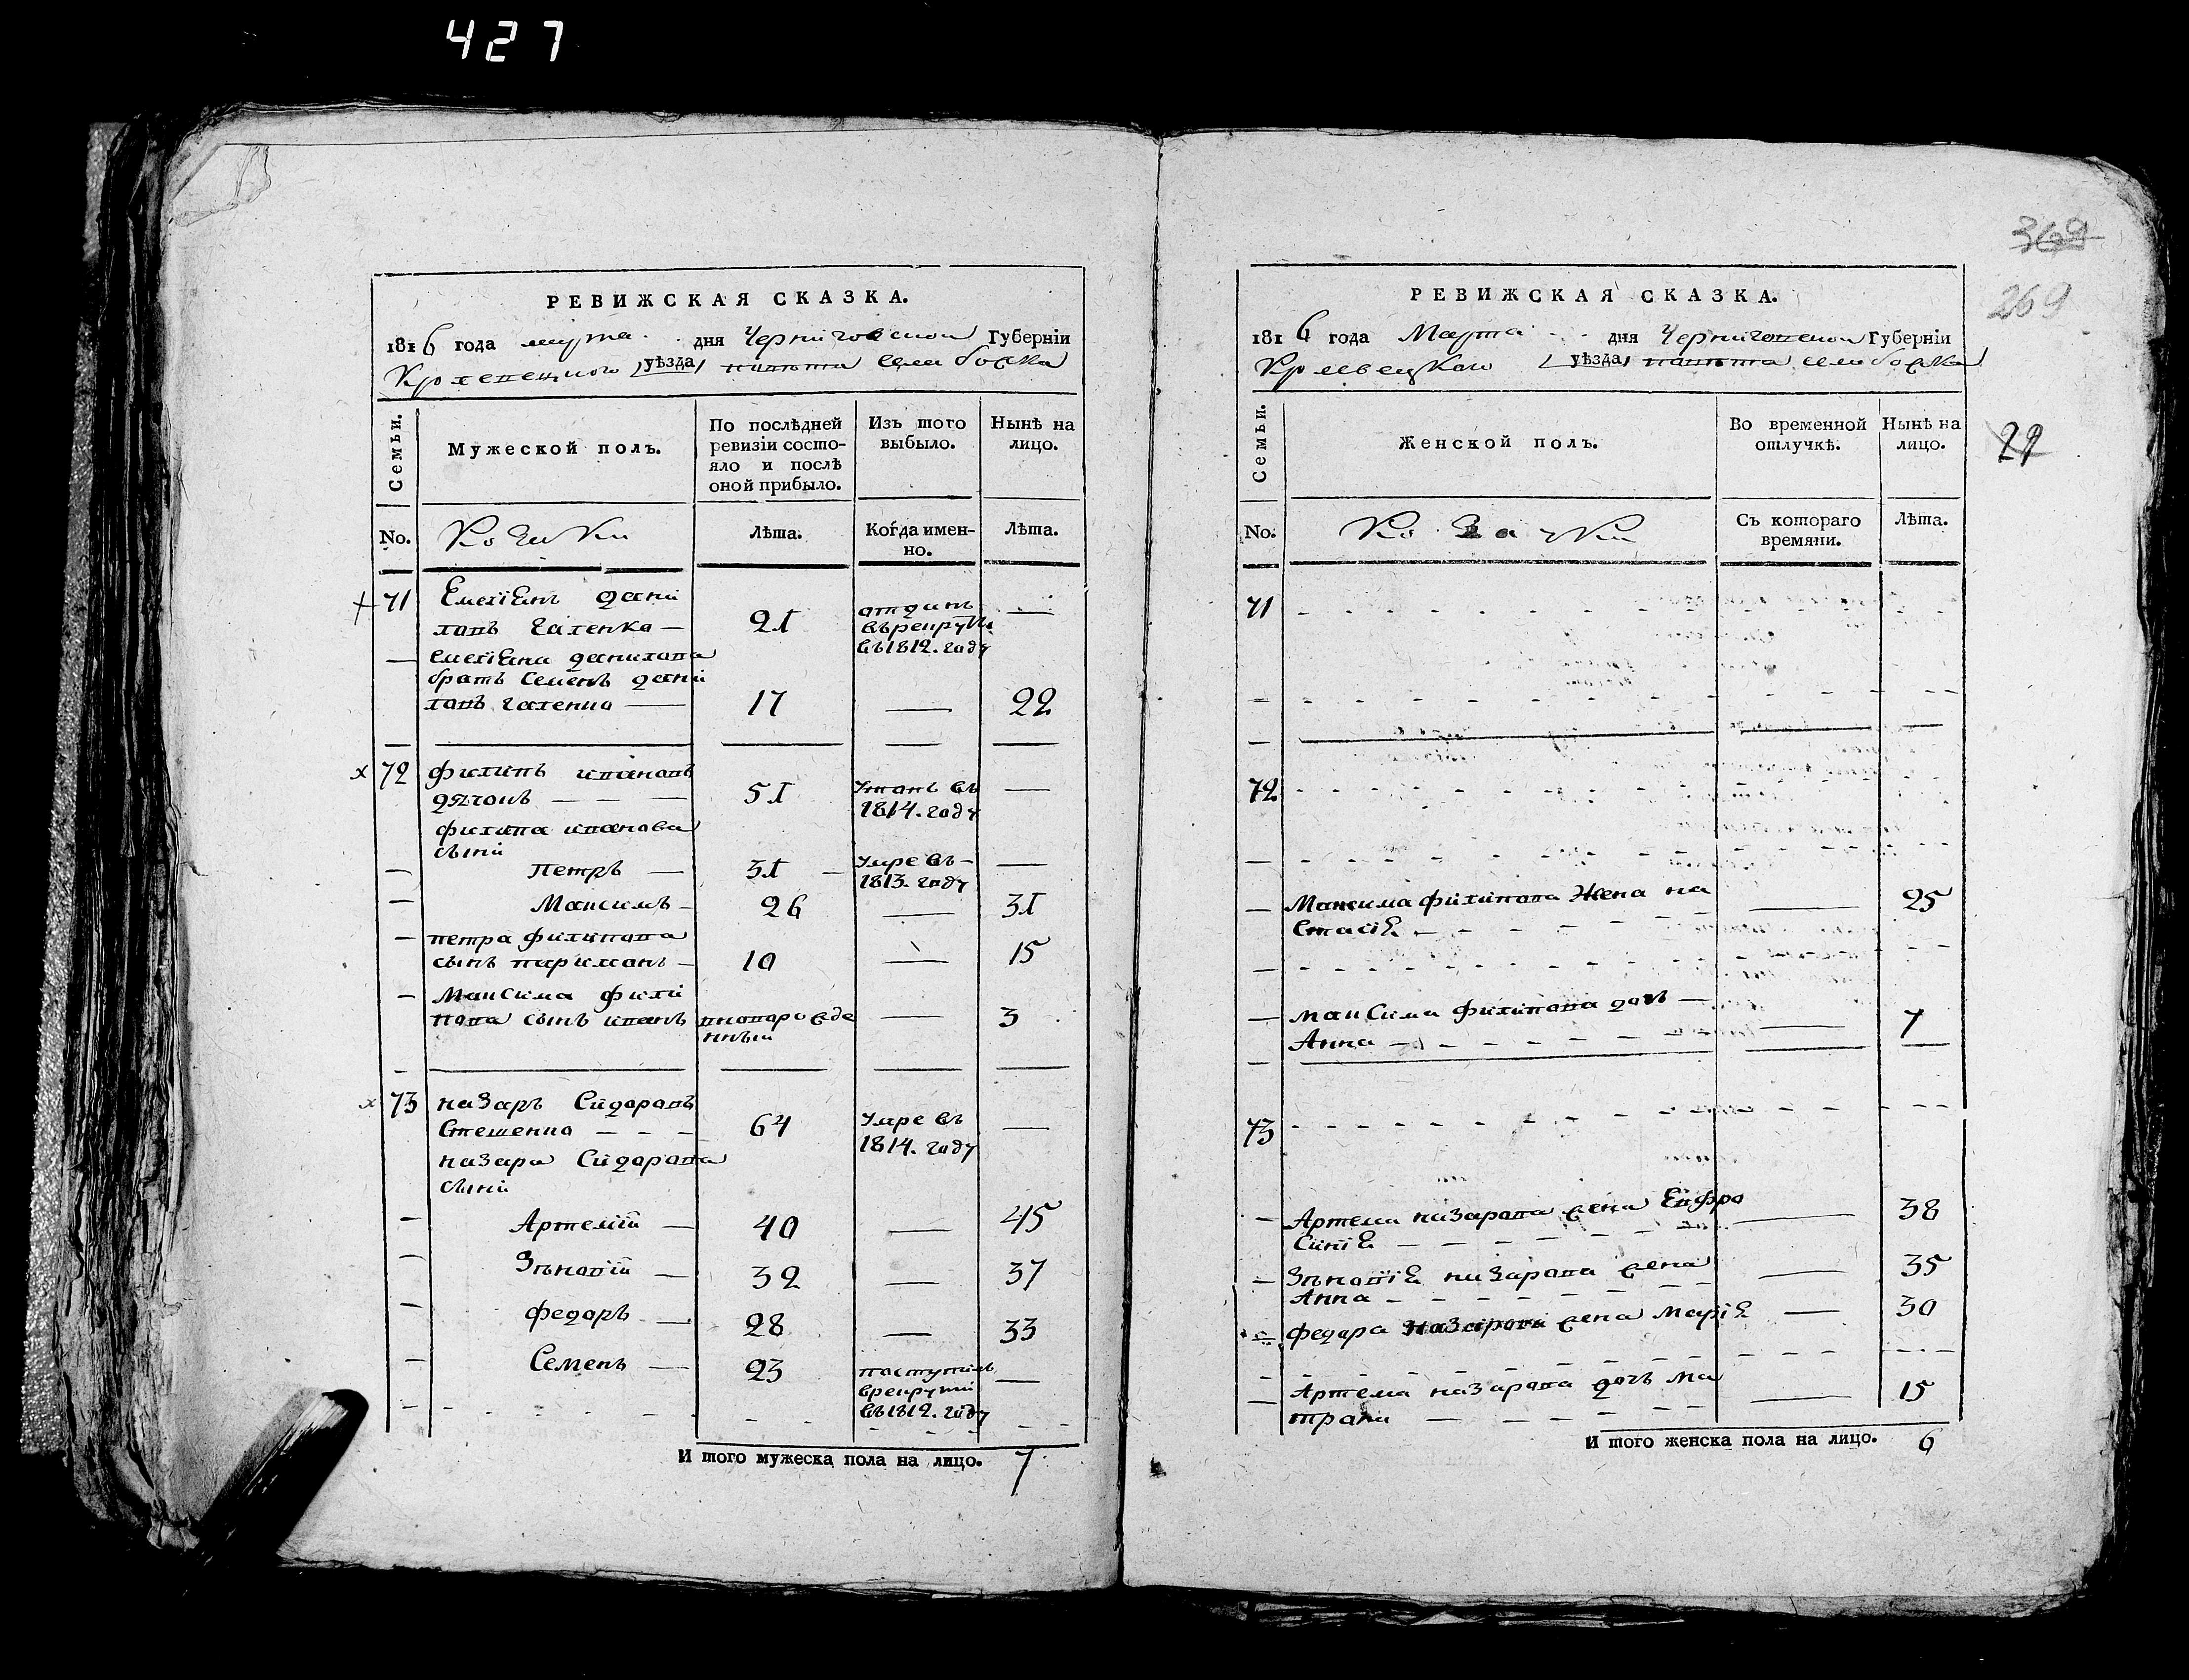 427
РЕВИЖСКАЯ СКАЗКА.
1816 года марта дня Черниговской Губерніи
Кролевецкого уѣзда села
Семьи.
Мужеской полъ.
По послѣдней ревизіи состо-
яло и послѣ
оной прибыло.
Изъ того
выбыло.
Нынѣ на
лицо.
No.
Козаки
Лѣта.
Когда имен-
но.
Лѣта.
71 Емеліянъ Дани
ловъ Галенко — 21 отданъ —
въ рекруты
въ 1812. году
— Емеліяна Данилова
братъ Семенъ Дани
ловъ Галенко — 17 — 22
х 72 Филипъ Ивановъ
Дячокъ — — — 51 —
1814. году
Филипа Иванова
сыни
— Петръ — 31 умре въ —
1813. году
— Максимъ — 26 — 31
— Петра Филипова
сынъ — 10 — 15
— Максима Фили
пова сынъ Иванъ новорожде — 3
нный
х 73 Назаръ Сидоровъ
Стешенко — — — 64 умре въ —
1814. году
Назара Сидорова
сыни
— Артемій — 40 — 45
— Зѣновій — 32 — 37
— Федоръ — 28 — 33
— Семенъ — 23 поступилъ —
в рекруты
въ 1812. году
И того мужеска пола на лицо. 7
369
269
22
РЕВИЖСКАЯ СКАЗКА.
1816 года Марта дня Черниговской Губерніи
Кролевецкого уѣзда села
Семьи.
Женской полъ.
Во временной
отлучкѣ.
Нынѣ на
лицо.
No.
Козачки
Съ котораго
времяни.
Лѣта.
71
72
— Максима Филипова жена На — 25
стасія
— Максима Филипова дочь — — 7
Анна
73
— Артема Назарова жена Евфро — 38
синія
— Зѣновія Назарова жена — 35
Анна
— Федора Назарова жена Марія — 30
— Артема Назарова дочь Ма — 15
трона
И того женска пола на лицо. 6